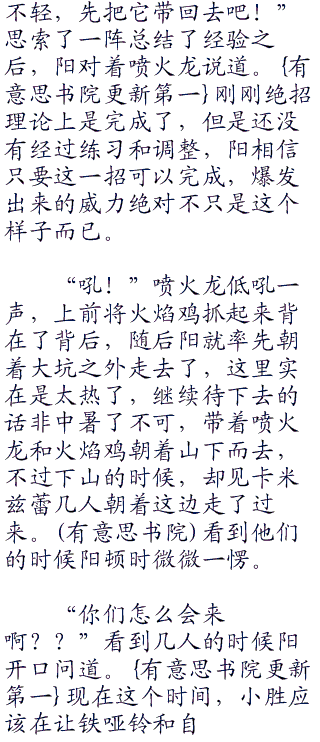 不轻，先把它带回去吧！”
思索了一阵总结了经验之
后，阳对着喷火龙说道。{有
意思书院更新第一}刚刚绝招
理论上是完成了，但是还没
有经过练习和调整，阳相信
只要这一招可以完成，爆发
出来的威力绝对不只是这个
样子而已。
“吼！”喷火龙低吼一
声，上前将火焰鸡抓起来背
在了背后，随后阳就率先朝
着大坑之外走去了，这里实
在是太热了，继续待下去的
话非中暑了不可，带着喷火
龙和火焰鸡朝着山下而去，
不过下山的时候，却见卡米
兹蕾几人朝着这边走了过
来。(有意思书院)看到他们
的时候阳顿时微微一愣。
“你们怎么会来
啊？？”看到几人的时候阳
开口问道。{有意思书院更新
第一}现在这个时间，小胜应
该在让铁哑铃和自